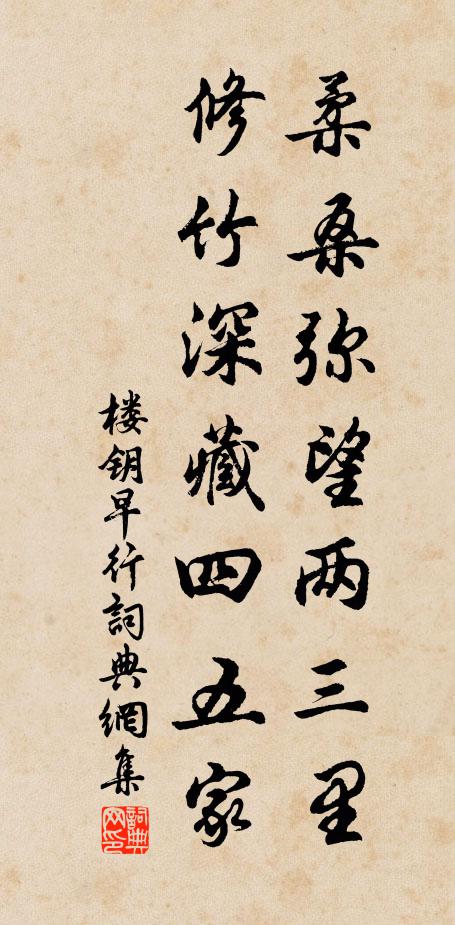 柔桑弥望两三里
修竹深藏四五家
楼钥早行詞典網集
詞典网印